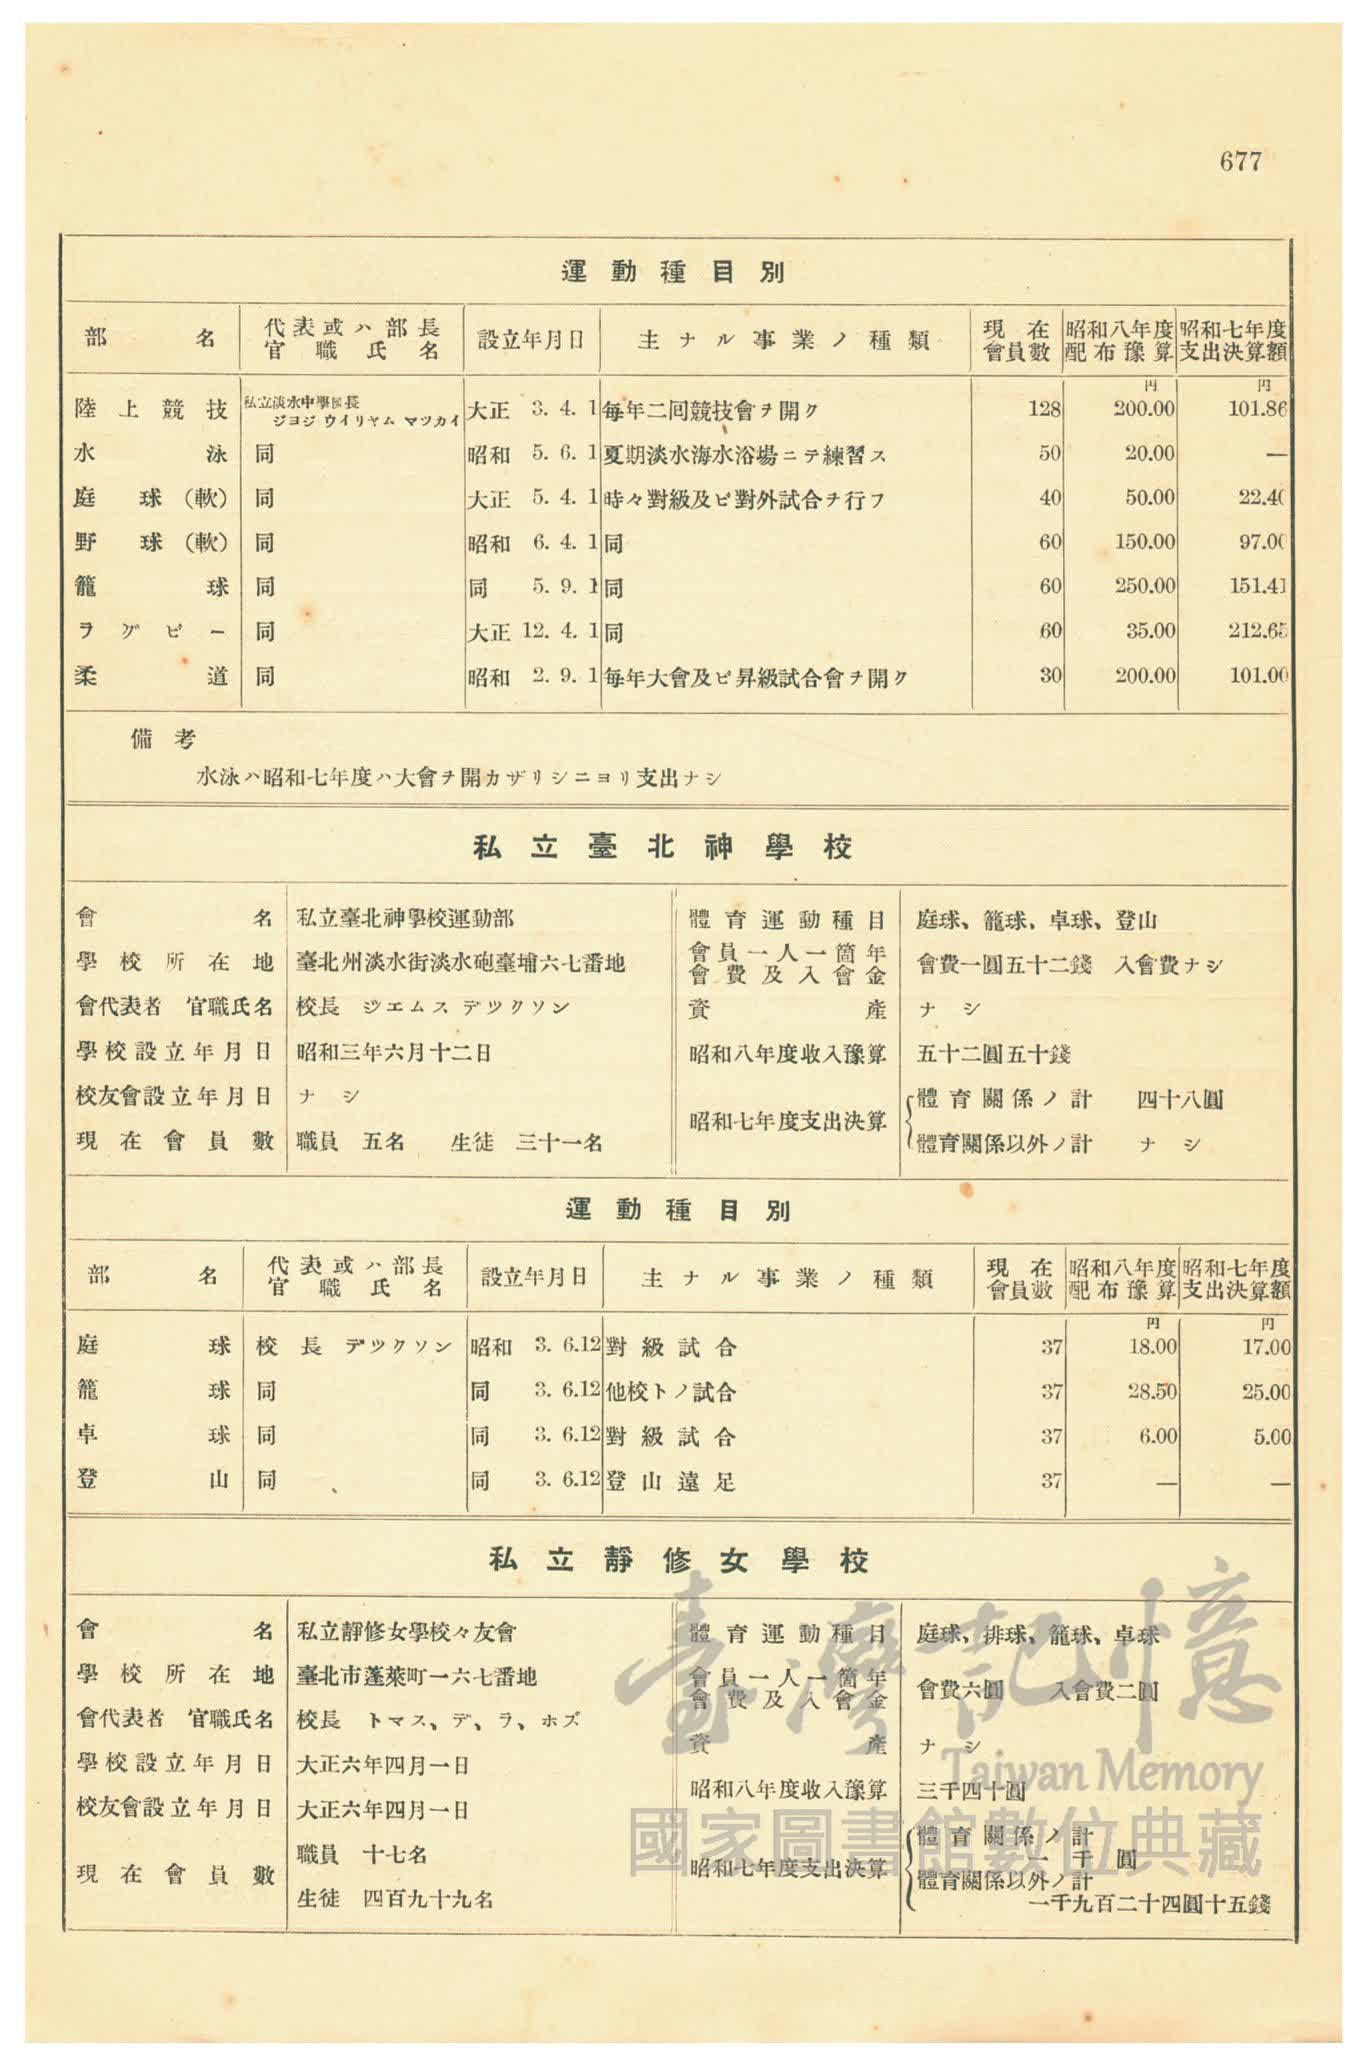 677
運動種目別
部名 代表或ハ部長官職氏名 設立年月日 主ナル事業ノ種類 現在會員數 昭和八年度配布豫算 昭和七年度支出決算額
円 円
陸上競技 私立淡水中學校長 ジヨジ ウイリヤム マツカイ 大正 3. 4. 1 每年二回競技會ヲ開ク 128 200.00 101.86
水泳 同 昭和 5. 6. 1 夏期淡水海水浴場ニテ練習ス 50 20.00 —
庭球(軟) 同 大正 5. 4. 1 時々對級及ビ對外試合ヲ行フ 40 50.00 22.40
野球(軟) 同 昭和 6. 4. 1 同 60 150.00 97.00
籠球 同 同 5. 9. 1 同 60 250.00 151.41
ラグビー 同 大正 12. 4. 1 同 60 35.00 212.65
柔道 同 昭和 2. 9. 1 每年大會及ビ昇級試合會ヲ開ク 30 200.00 101.00
備考
水泳ハ昭和七年度ハ大會ヲ開カザリシニヨリ支出ナシ
私立臺北神學校
會名 私立臺北神學校運動部 體育運動種目 庭球、籠球、卓球、登山
學校所在地 臺北州淡水街淡水砲臺埔六七番地 會員一人一箇年會費及入會金 會費一圓五十二錢 入會費ナシ
會代表者 官職氏名 校長 ジエムス デツクソン 資產 ナシ
學校設立年月日 昭和三年六月十二日 昭和八年度收入豫算 五十二圓五十錢
校友會設立年月日 ナシ 昭和七年度支出決算 體育關係ノ計 四十八圓
現在會員數 職員 五名 生徒 三十一名 體育關係以外ノ計 ナシ
運動種目別
部名 代表或ハ部長官職氏名 設立年月日 主ナル事業ノ種類 現在會員數 昭和八年度配布豫算 昭和七年度支出決算額
円 円
庭球 校長 デツクソン 昭和 3. 6.12 對級試合 37 18.00 17.00
籠球 同 同 3. 6.12 他校トノ試合 37 28.50 25.00
卓球 同 同 3. 6.12 對級試合 37 6.00 5.00
登山 同 同 3. 6.12 登山遠足 37 — —
私立靜修女學校
會名 私立靜修女學校々友會 體育運動種目 庭球、排球、籠球、卓球
學校所在地 臺北市蓬萊町一六七番地 會員一人一箇年會費及入會金 會費六圓 入會費二圓
會代表者 官職氏名 校長 トマス、デ、ラ、ホズ 資產 ナシ
學校設立年月日 大正六年四月一日 昭和八年度收入豫算 三千四十圓
校友會設立年月日 大正六年四月一日 昭和七年度支出決算 體育關係ノ計 一千圓
現在會員數 職員 十七名 生徒 四百九十九名 體育關係以外ノ計 一千九百二十四圓十五錢
臺灣記憶
Taiwan Memory
國家圖書館數位典藏